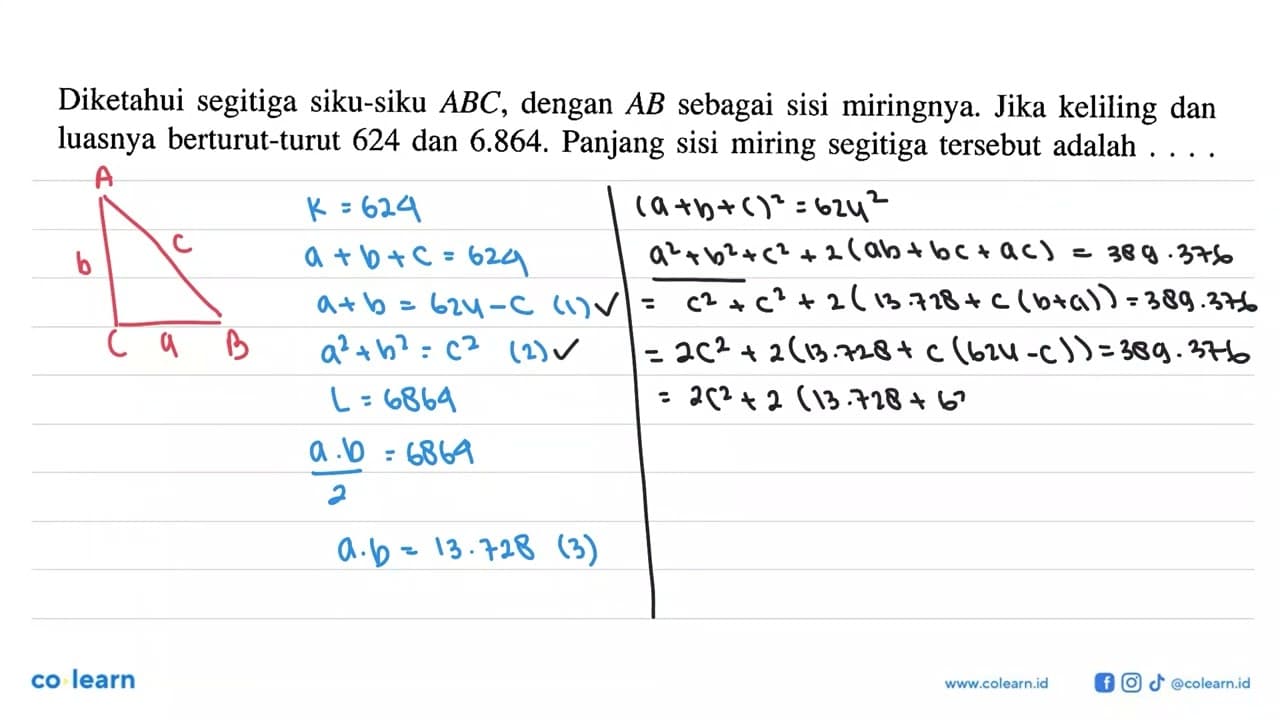 Diketahui segitiga siku-siku ABC, dengan AB sebagai sisi miringnya. Jika keliling dan
luasnya berturut-turut 624 dan 6.864. Panjang sisi miring segitiga tersebut adalah . . . .
A
b
c
C a B
K = 624
a + b + c = 624
a + b = 624 - c (1) ✓
a² + b² = c² (2) ✓
L = 6864
a . b / 2 = 6864
a . b = 13.728 (3)
(a + b + c)² = 624²
a² + b² + c² + 2 (ab + bc + ac) = 389.376
= c² + c² + 2 (13.728 + c (b + a)) = 389.376
= 2c² + 2 (13.728 + c (624 - c)) = 389.376
= 2c² + 2 (13.728 + 6
co learn
www.colearn.id
@colearn.id